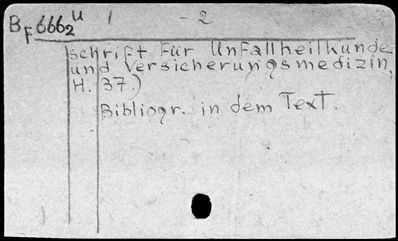 B_F 666_2^U 1 - 2
schrift für Unfallheilkunde
und Versicherungsmedizin,
H. 37.)
Bibliogr. in dem Text.